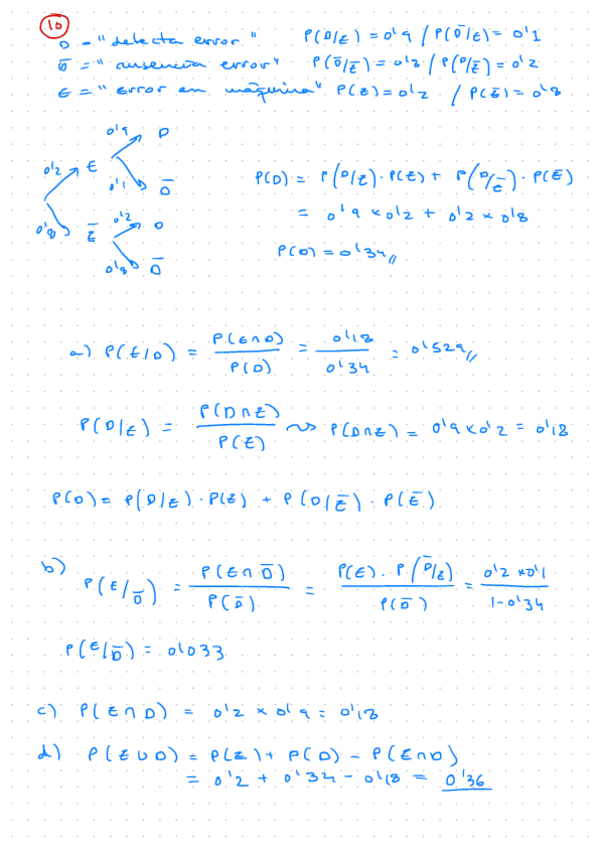 10
D = "detecta error" P(D/E) = 0'9 / P(D̄/E) = 0'1
D̄ = "ausencia error" P(D̄/Ē) = 0'8 / P(D/Ē) = 0'2
E = "error en máquina" P(E) = 0'2 / P(Ē) = 0'8
0'9 D
0'2 E
0'1 D̄
P(D) = P(D/E) · P(E) + P(D/Ē) · P(Ē)
0'8 Ē 0'2 D
= 0'9 x 0'2 + 0'2 x 0'8
0'8 D̄
P(D) = 0'34//
a) P(E/D) = P(E∩D) / P(D) = 0'18 / 0'34 = 0'529//
P(D/E) = P(D∩E) / P(E) ⤳ P(D∩E) = 0'9 x 0'2 = 0'18
P(D) = P(D/E) · P(E) + P(D/Ē) · P(Ē)
b) P(E/D̄) = P(E∩D̄) / P(D̄) = P(E) · P(D̄/E) / P(D̄) = 0'2 x 0'1 / 1-0'34
P(E/D̄) = 0'033
c) P(E∩D) = 0'2 x 0'9 = 0'18
d) P(E∪D) = P(E) + P(D) - P(E∩D)
= 0'2 + 0'34 - 0'18 = 0'36